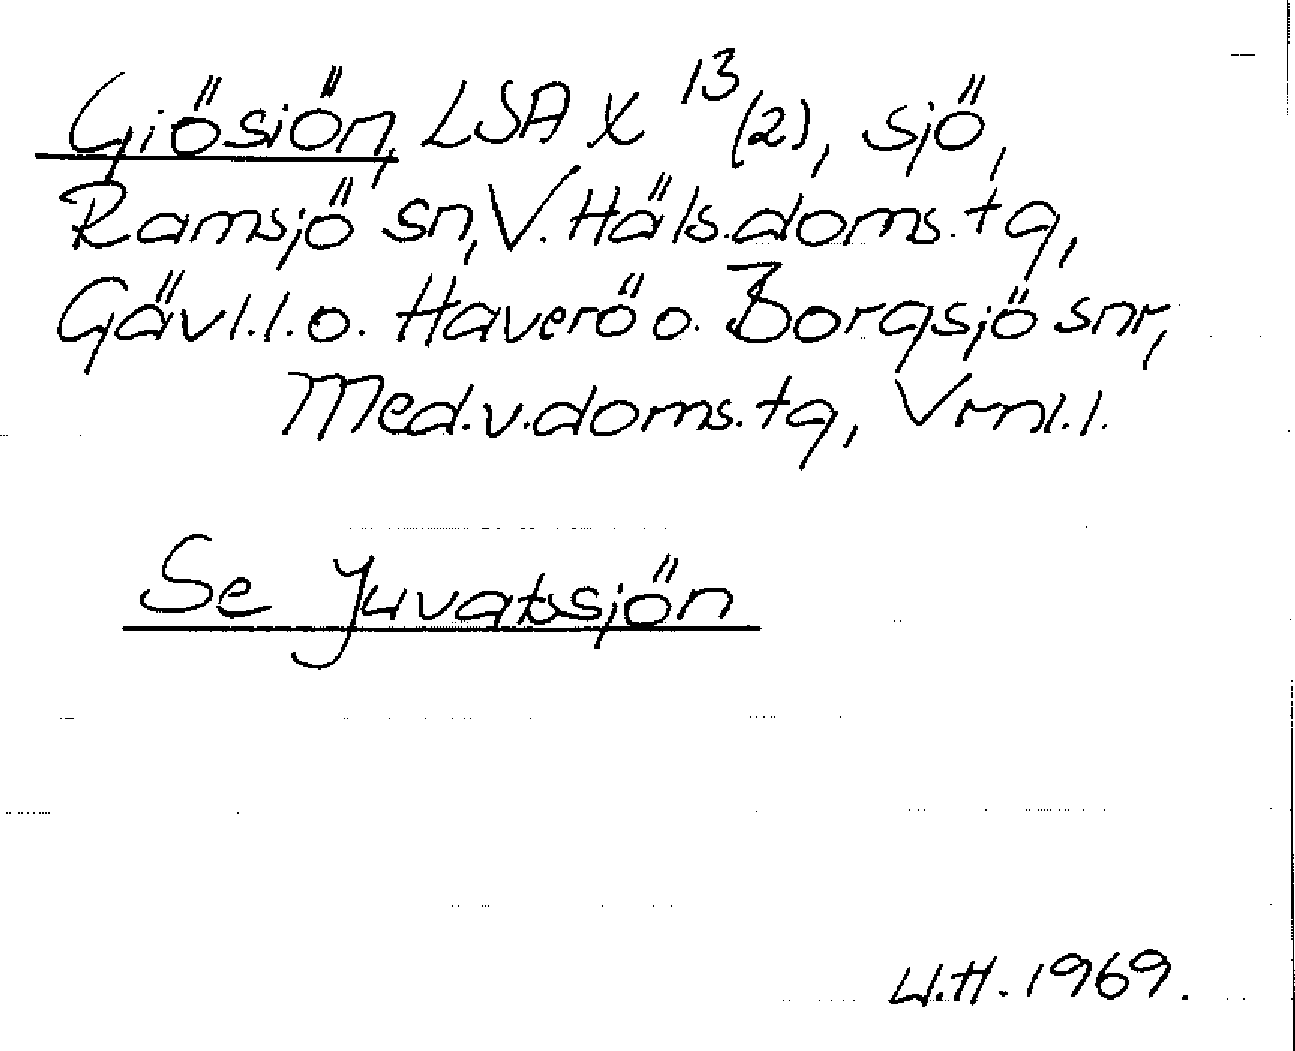 Giösiön, LSA X 13 (2), sjö,
Ramsjö sn, V. Häls. doms. tg,
Gävl. l. o. Haverö o. Borgsjö snr,
Med. v. doms. tg, Vrnl. l.
Se Juvatssjön
U.H. 1969.